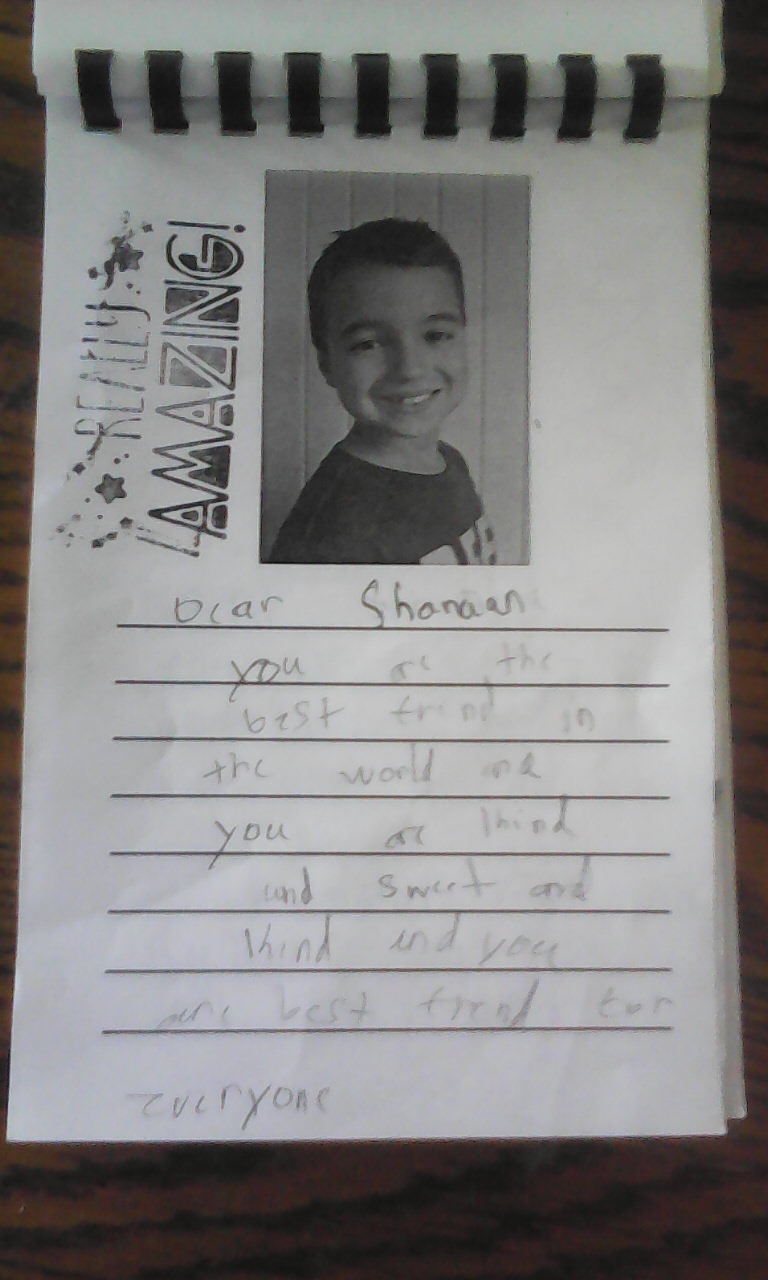 REALLY
AMAZING!
Dear Shanaan
you are the
best frend in
the world and
you are khind
and sweet and
khind and you
are best frend for
everyone